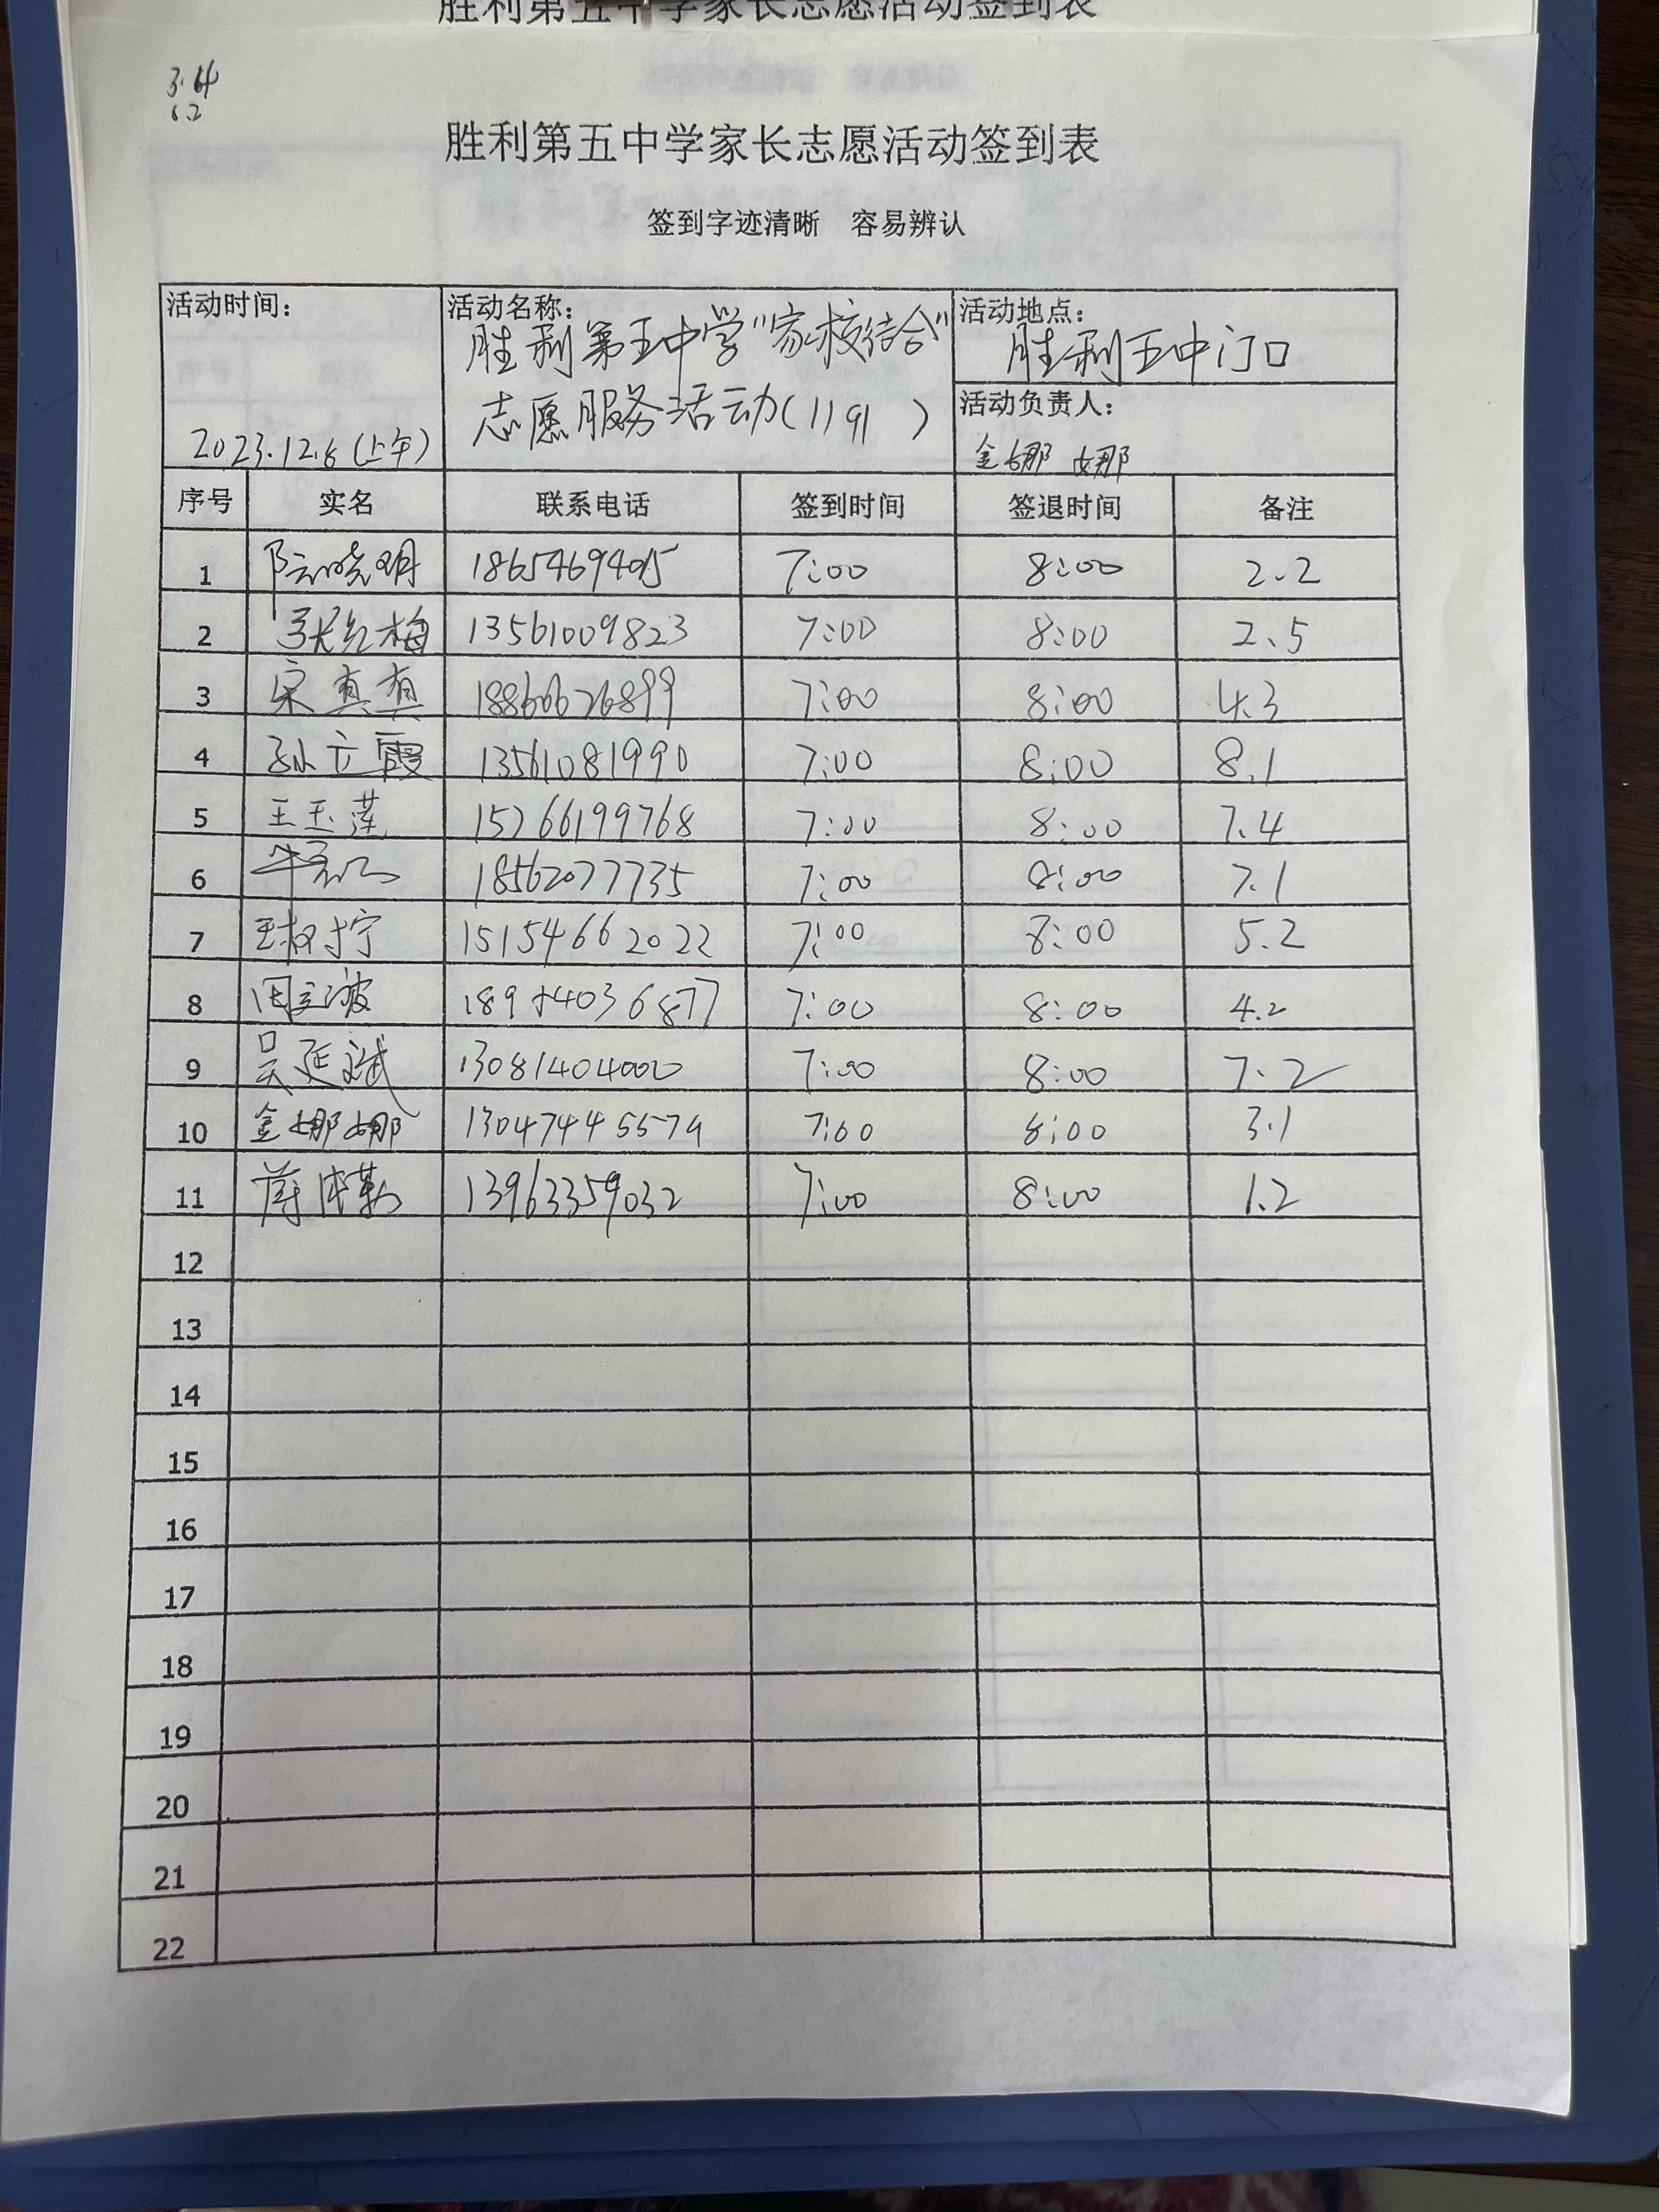 胜利第五中学家长志愿活动签到表
3.4
6.2
胜利第五中学家长志愿活动签到表
签到字迹清晰 容易辨认
活动时间: 2023.12.8(上午)
活动名称: 胜利第五中学"家校结合"
志愿服务活动(1191 )
活动地点: 胜利五中门口
活动负责人: 金娜娜
序号 实名 联系电话 签到时间 签退时间 备注
1 陈晓明 7:00 8:00 2.2
2 张红梅 13561009823 7:00 8:00 2.5
3 宋真真 18866626899 7:00 8:00 4.3
4 孙立霞 13561081990 7:00 8:00 8.1
5 王玉莲 15266199768 7:00 8:00 7.4
6 18562077735 7:00 8:00 7.1
7 15154662022 7:00 8:00 5.2
8 周立波 18954036877 7:00 8:00 4.2
9 吴延斌 13081404000 7:00 8:00 7.2
10 金娜娜 7:00 8:00 3.1
11 13963359032 7:00 8:00 1.2
12
13
14
15
16
17
18
19
20
21
22